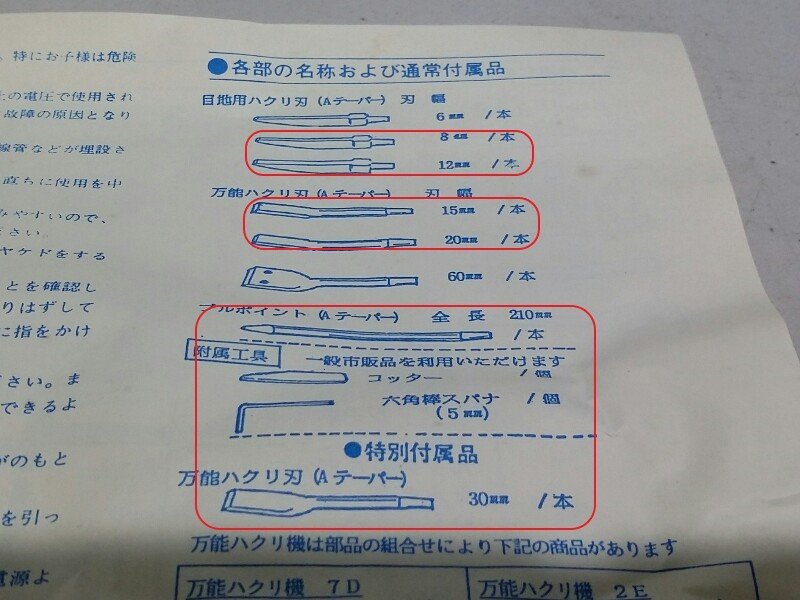 、特にお子様は危険
上の電圧で使用され
故障の原因となり
線管などが埋設さ
直ちに使用を中
みやすいので、
さい。
ヤケドをする
ことを確認し
りはずして
に指をかけ
ださい。ま
できるよ
がのもと
を引っ
電源よ
●各部の名称および通常付属品
目地用ハクリ刃(Aテーパー) 刃 幅
6㎜ 1本
8㎜ 1本
12㎜ 1本
万能ハクリ刃(Aテーパー) 刃 幅
15㎜ 1本
20㎜ 1本
60㎜ 1本
ブルポイント(Aテーパー) 全 長 210㎜
1本
附属工具 一般市販品を利用いただけます
コッター 1個
六角棒スパナ 1個
(5㎜)
●特別付属品
万能ハクリ刃(Aテーパー)
30㎜ 1本
万能ハクリ機は部品の組合せにより下記の商品があります
万能ハクリ機 7D
万能ハクリ機 2E